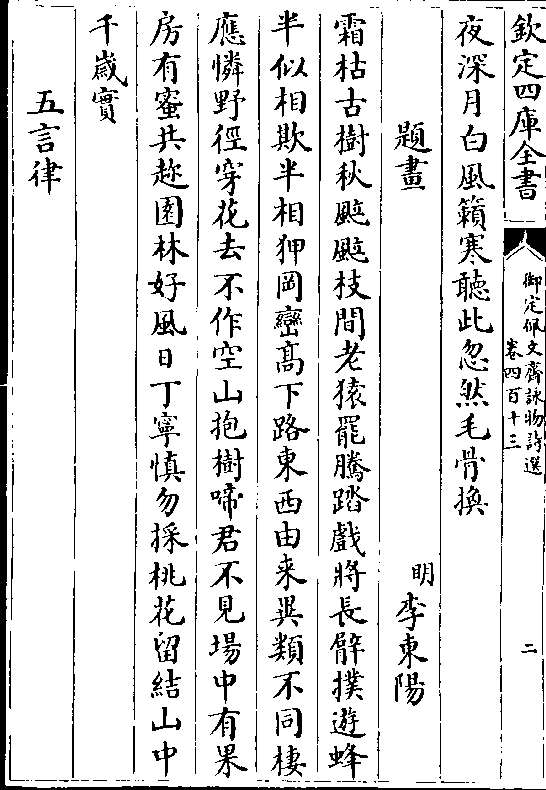 欽定四庫全書
御定佩文齋詠物詩選
卷四百十三
二
夜深月白風籟寒聽此忽然毛骨換
題畫
明 李東陽
霜枯古樹秋颼颼枝間老猿罷騰踏戲將長臂撲遊蜂
半似相欺半相狎岡巒高下路東西由来異類不同棲
應憐野徑穿花去不作空山抱樹啼君不見場中有果
房有蜜共趂園林好風日丁寧慎勿採桃花留結山中
千歲實
五言律